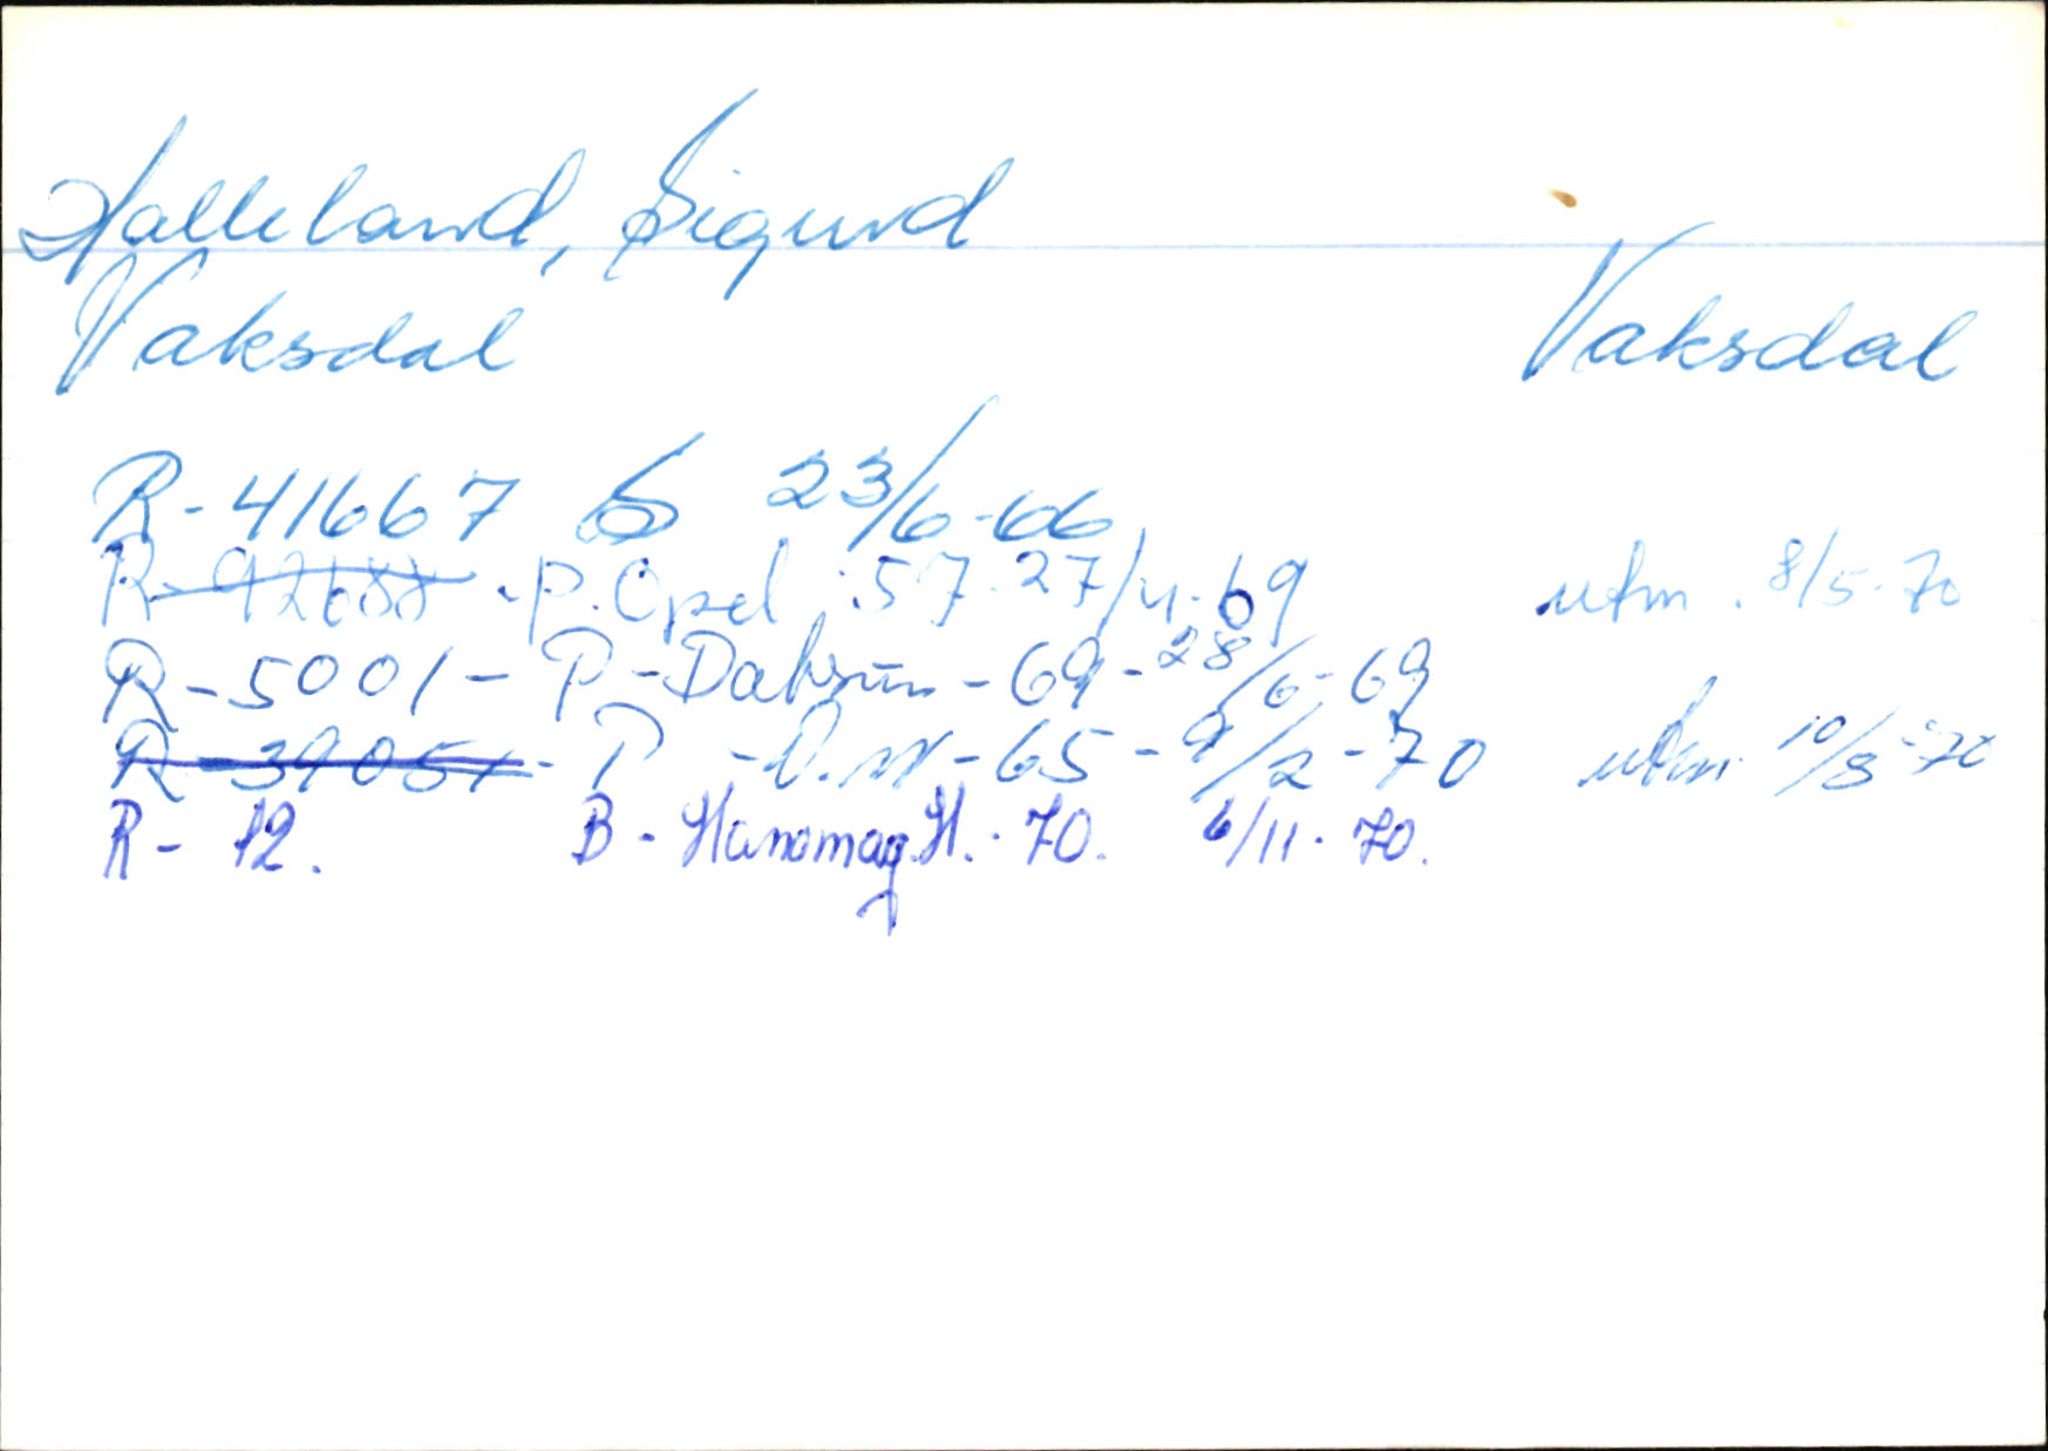 Halleland, Sigurd
Vaksdal Vaksdal
R-41667 23/6-66
R-92688 -P. Opel :57. 27/4.69 utm. 8/5-70
R-5001 - P - Datsun - 69 - 28/6-69
R-39051 - P - - 65 - 9/2-70 utm. 10/3-70
R- 12. B - Hanomag.H. 70. 6/11. 70.